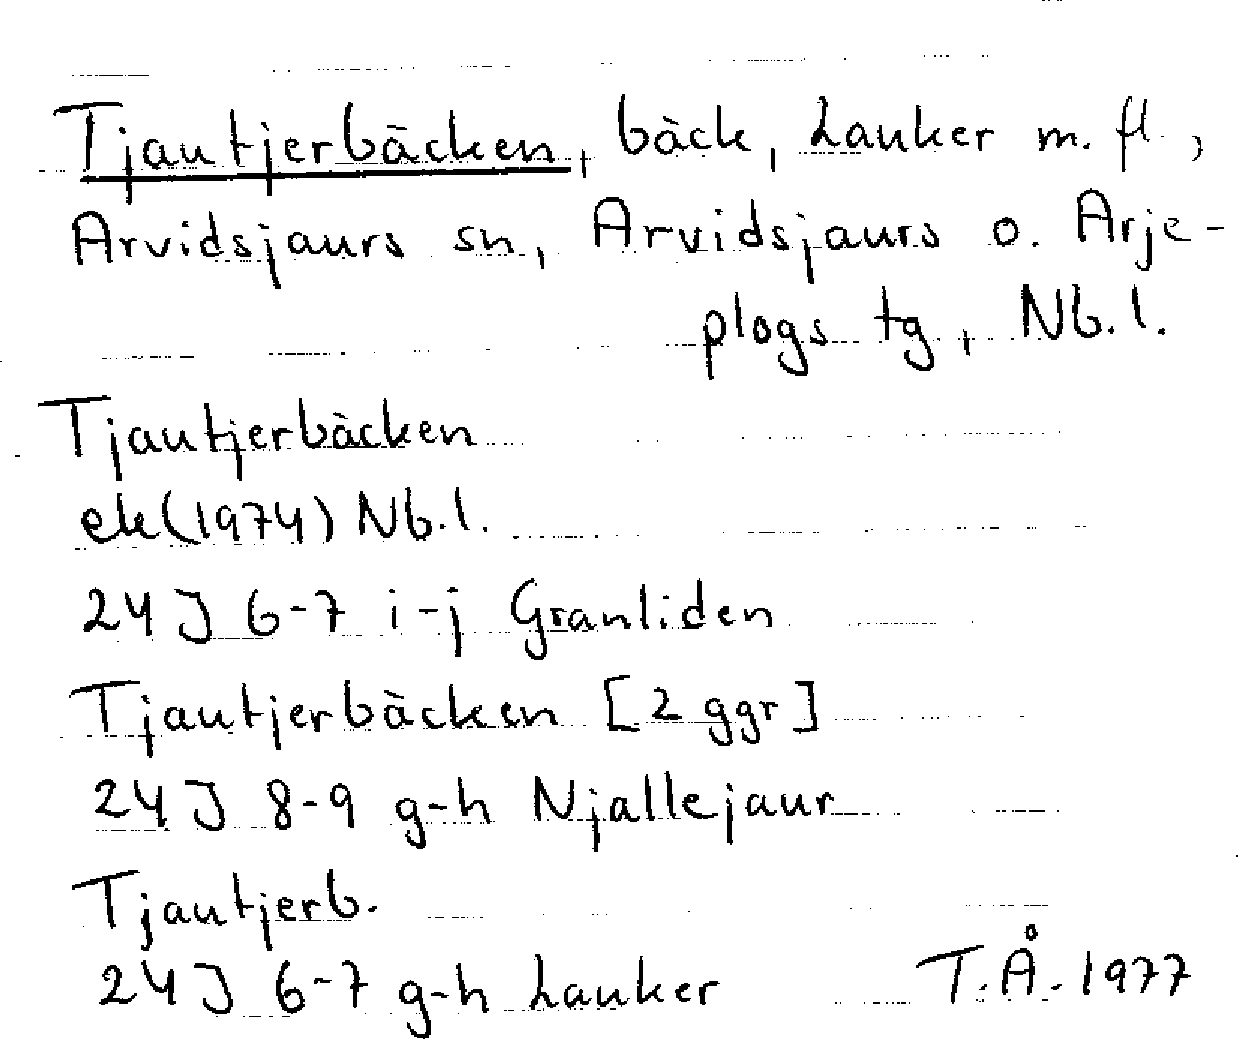 Tjautjerbäcken, bäck, Lauker m. fl.,
Arvidsjaurs sn, Arvidsjaurs o. Arje-
plogs tg, Nb.l.
Tjautjerbäcken
ek(1974) Nb.l.
24J 6-7 i-j Granliden
Tjautjerbäcken [2 ggr]
24J 8-9 g-h Njallejaur
Tjautjerb.
24J 6-7 g-h Lauker T.Å. 1977